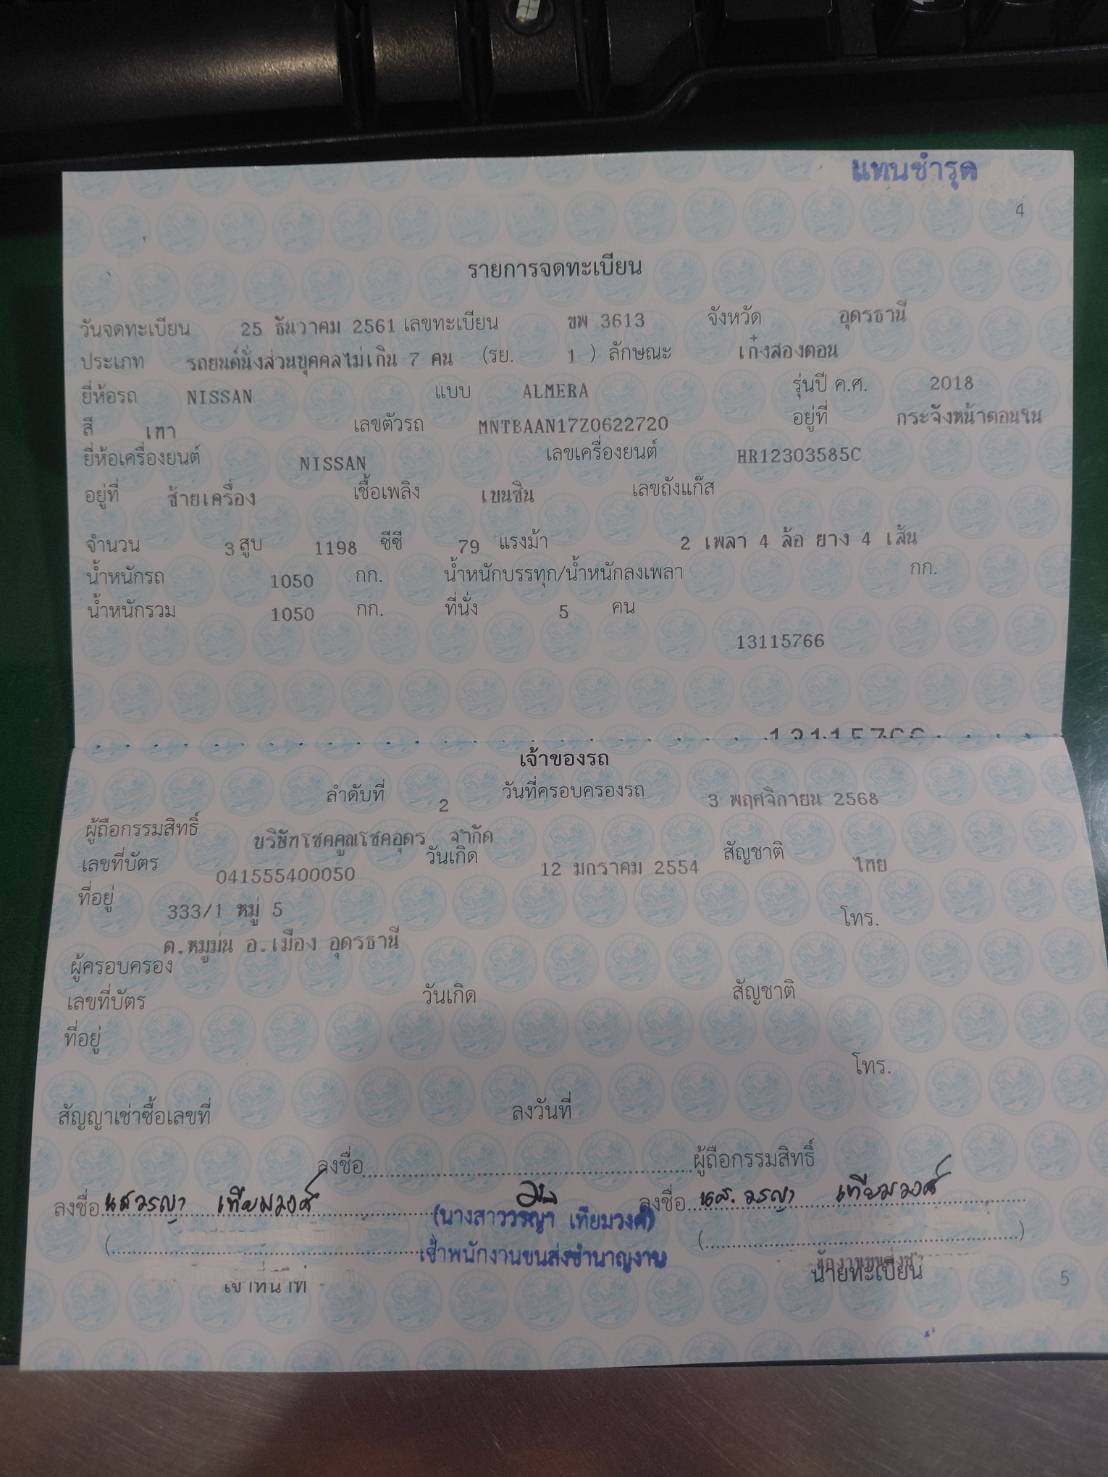 แทนชำรุด
4
รายการจดทะเบียน
วันจดทะเบียน 25 ธันวาคม 2561 เลขทะเบียน ขพ 3613 จังหวัด อุดรธานี
ประเภท รถยนต์นั่งส่วนบุคคลไม่เกิน 7 คน (รย. 1 ) ลักษณะ เก๋งสองตอน
ยี่ห้อรถ NISSAN แบบ ALMERA รุ่นปี ค.ศ. 2018
สี เทา เลขตัวรถ MNTBAAN17Z0622720 อยู่ที่ กระจังหน้าตอนใน
ยี่ห้อเครื่องยนต์ NISSAN เลขเครื่องยนต์ HR12303585C
อยู่ที่ ซ้ายเครื่อง เชื้อเพลิง เบนซิน เลขถังแก๊ส
จำนวน 3 สูบ 1198 ซีซี 79 แรงม้า 2 เพลา 4 ล้อ ยาง 4 เส้น
น้ำหนักรถ 1050 กก. น้ำหนักบรรทุก/น้ำหนักลงเพลา กก.
น้ำหนักรวม 1050 กก. ที่นั่ง 5 คน
13115766
13115766
เจ้าของรถ
ลำดับที่ 2 วันที่ครอบครองรถ 3 พฤศจิกายน 2568
ผู้ถือกรรมสิทธิ์ บริษัทโชคคูณโชคอุดร จำกัด
เลขที่บัตร 041555400050 วันเกิด 12 มกราคม 2554 สัญชาติ ไทย
ที่อยู่ 333/1 หมู่ 5 โทร.
ต.หมูม่น อ.เมือง อุดรธานี
ผู้ครอบครอง
เลขที่บัตร วันเกิด สัญชาติ
ที่อยู่
โทร.
สัญญาเช่าซื้อเลขที่ ลงวันที่
ลงชื่อ ผู้ถือกรรมสิทธิ์
ลงชื่อ นส วรญา เทียมวงศ์ ลงชื่อ นส. วรญา เทียมวงศ์
(นางสาววรญา เทียมวงศ์)
เจ้าพนักงานขนส่งชำนาญงาน
เจ้าหน้าที่ นายทะเบียน
5